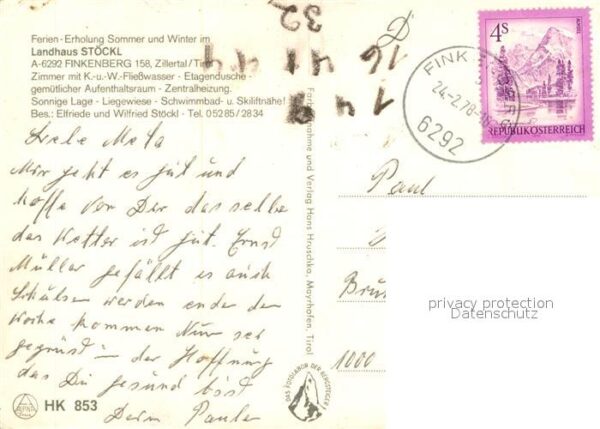 Ferien-Erholung Sommer und Winter im
Landhaus STÖCKL
A-6292 FINKENBERG 158, Zillertal/Tirol
Zimmer mit K.- u.-W.-Fließwasser - Etagendusche -
gemütlicher Aufenthaltsraum - Zentralheizung.
Sonnige Lage - Liegewiese - Schwimmbad- u. Skiliftnähe!
Bes.: Elfriede und Wilfried Stöckl - Tel. 05285/2834
Liebe
Mir geht es gut und
hoffe von Dir das selbe
das Wetter ist gut. Ernst
Müller gefällt es auch
werden ende der
Woche kommen Nun sei
gegrüst in der Hoffnung
das Du gesund bist
Dein
HK 853
Verlag Hans Hruschka, Mayrhofen, Tirol
DAS FOTOLABOR DER BERGSTEIGER
32
4S
REPUBLIK ÖSTERREICH
24.-2.78
6292
Paul
1000
privacy protection
Datenschutz